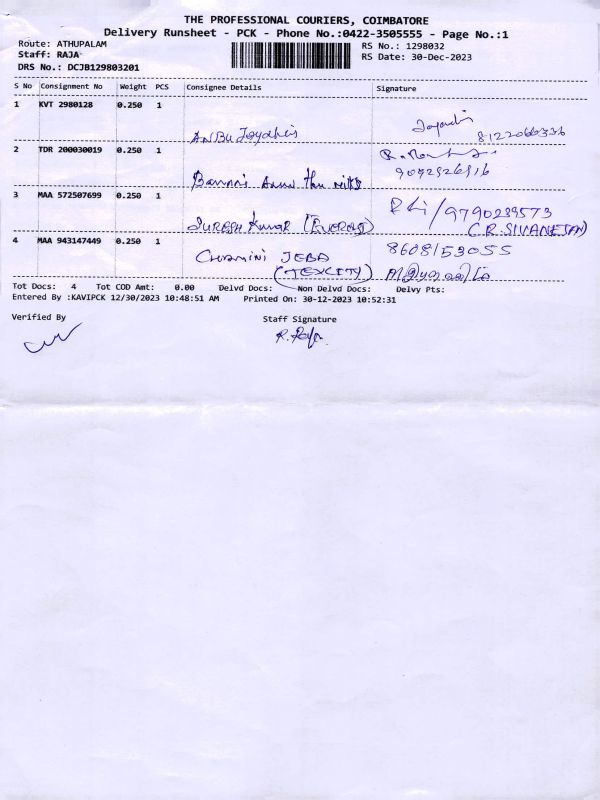 THE PROFESSIONAL COURIERS, COIMBATORE
Delivery Runsheet - PCK - Phone No.:0422-3505555 - Page No.:1
Route: ATHUPALAM
RS No.: 1298032
Staff: RAJA
RS Date: 30-Dec-2023
DRS No.: DCJB129803201
S No Consignment No Weight PCS Consignee Details Signature
1 KVT 2980128 0.250 1
ANBU
2 TDR 200030019 0.250 1
3 MAA 572507699 0.250 1
9790239573
SURESH Kumar (C.R. SIVANESAN)
4 MAA 943147449 0.250 1 8608153055
JEBA
(TEXCITY)
Tot Docs: 4 Tot COD Amt: 0.00 Delvd Docs: Non Delvd Docs: Delvy Pts:
Entered By :KAVIPCK 12/30/2023 10:48:51 AM Printed On: 30-12-2023 10:52:31
Verified By Staff Signature
R. Raja